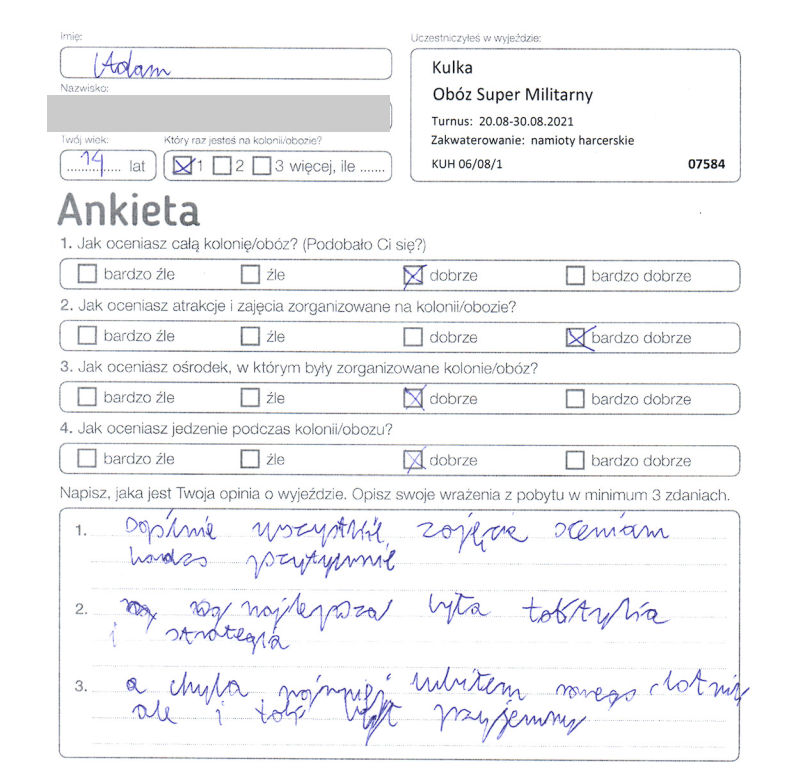 Imię:
Adam
Uczestniczyłeś w wyjeździe:
Kulka
Obóz Super Militarny
Turnus: 20.08-30.08.2021
Zakwaterowanie: namioty harcerskie
KUH 06/08/1 07584
Nazwisko:
Twój wiek:
14 lat
Który raz jesteś na kolonii/obozie?
1 2 3 więcej, ile .......
Ankieta
1. Jak oceniasz całą kolonię/obóz? (Podobało Ci się?)
bardzo źle źle dobrze bardzo dobrze
2. Jak oceniasz atrakcje i zajęcia zorganizowane na kolonii/obozie?
bardzo źle źle dobrze bardzo dobrze
3. Jak oceniasz ośrodek, w którym były zorganizowane kolonie/obóz?
bardzo źle źle dobrze bardzo dobrze
4. Jak oceniasz jedzenie podczas kolonii/obozu?
bardzo źle źle dobrze bardzo dobrze
Napisz, jaka jest Twoja opinia o wyjeździe. Opisz swoje wrażenia z pobytu w minimum 3 zdaniach.
1. wszystkie zajęcia oceniam
bardzo pozytywnie
2. najlepsza była taktyka
i strategia
3. a chyba najmniej lubiłem
ale i tak był przyjemny